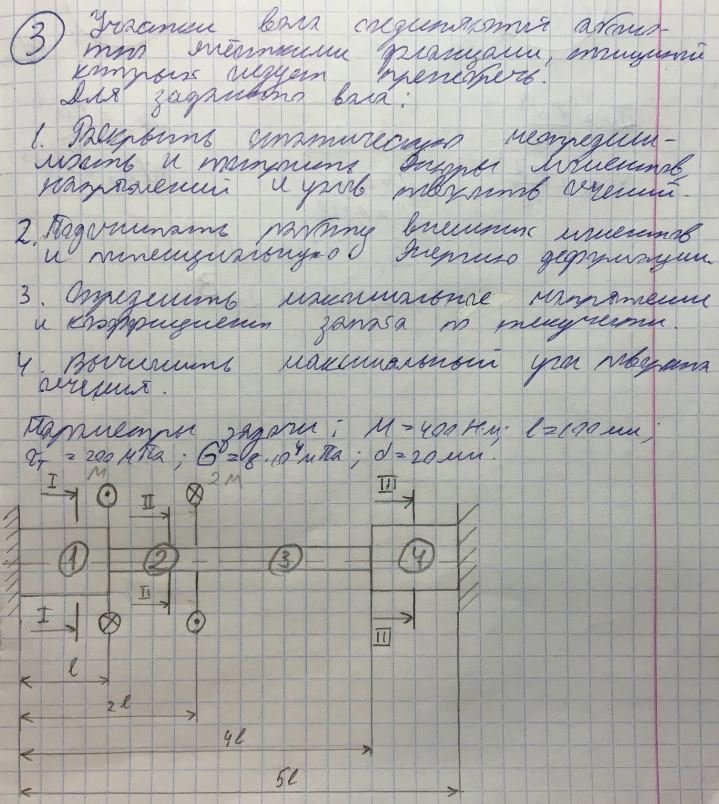 3 Участки вала соединяются абсолю-
тно жёсткими фланцами, толщиной
которых следует пренебречь.
Для заданного вала:
1. Раскрыть статическую неопредели-
мость и построить эпюры моментов,
напряжений и углов поворотов сечений.
2. Подсчитать работу внешних моментов
и потенциальную энергию деформации.
3. Определить максимальные напряжения
и коэффициент запаса по текучести.
4. Вычислить максимальный угол поворота
сечения.
Параметры задачи: M = 400 Нм; l = 100 мм;
τт = 200 МПа; G = 8·10⁴ МПа; d = 20 мм.
M 2M
I II III
1 2 3 4
I II III
l
2l
4l
5l